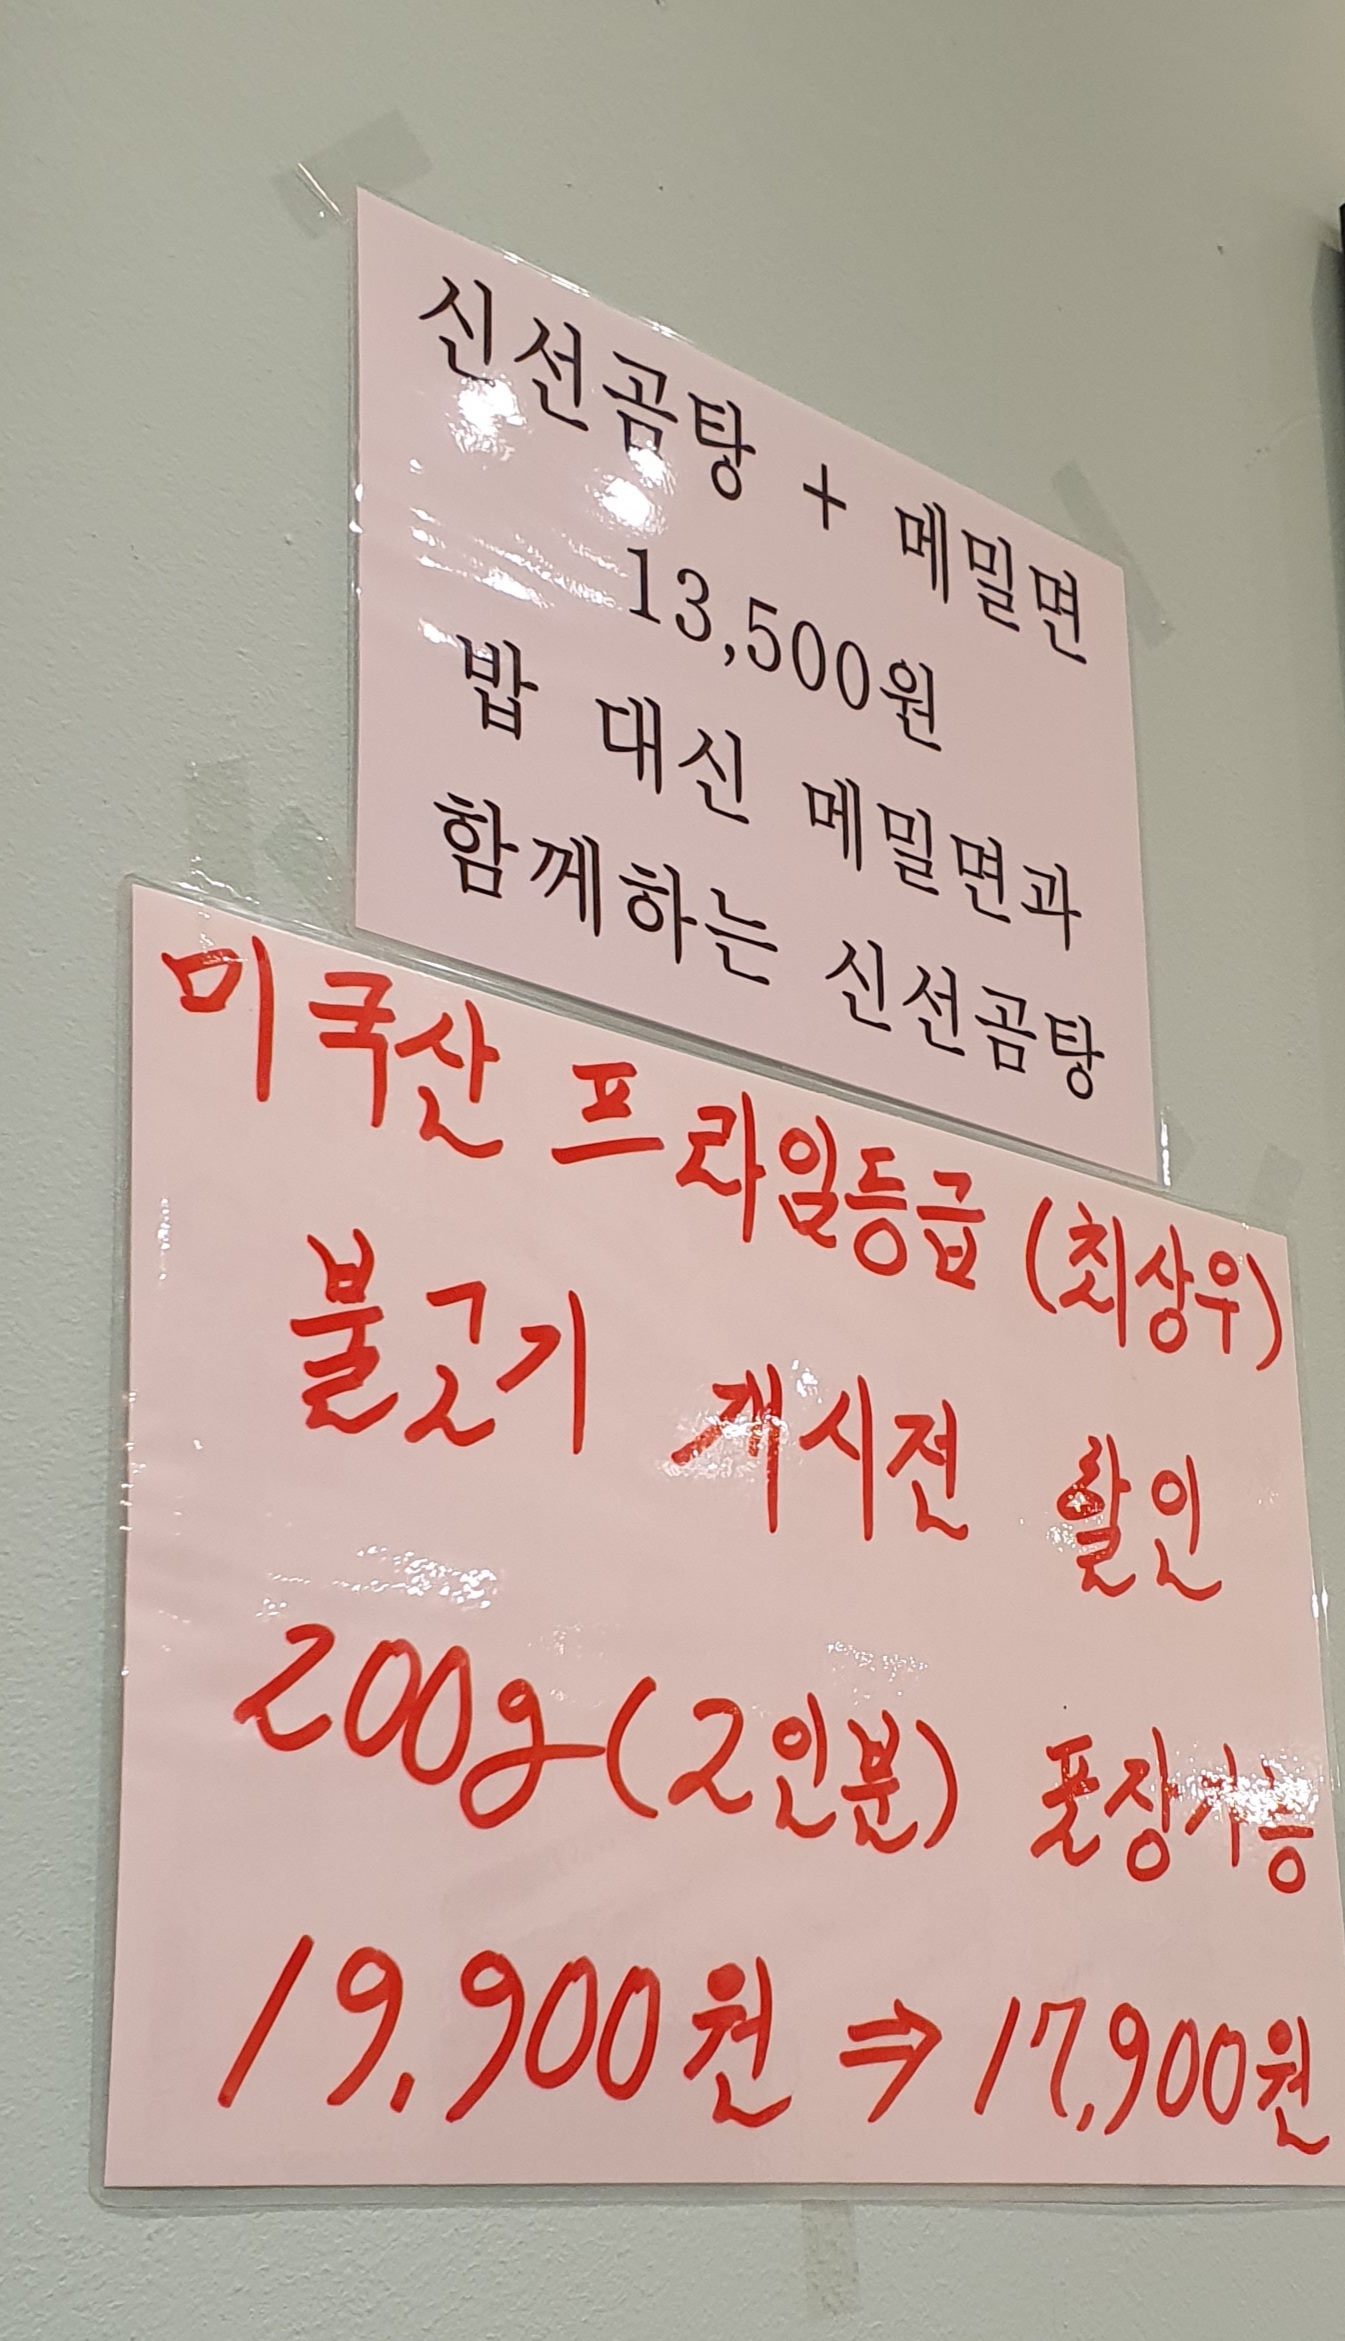 신선곰탕 + 메밀면
13,500원
밥 대신 메밀면과
함께하는 신선곰탕
미국산 프라임등급 (최상우)
불고기 개시전 할인
200g (2인분) 포장가능
19,900원 ⇒ 17,900원